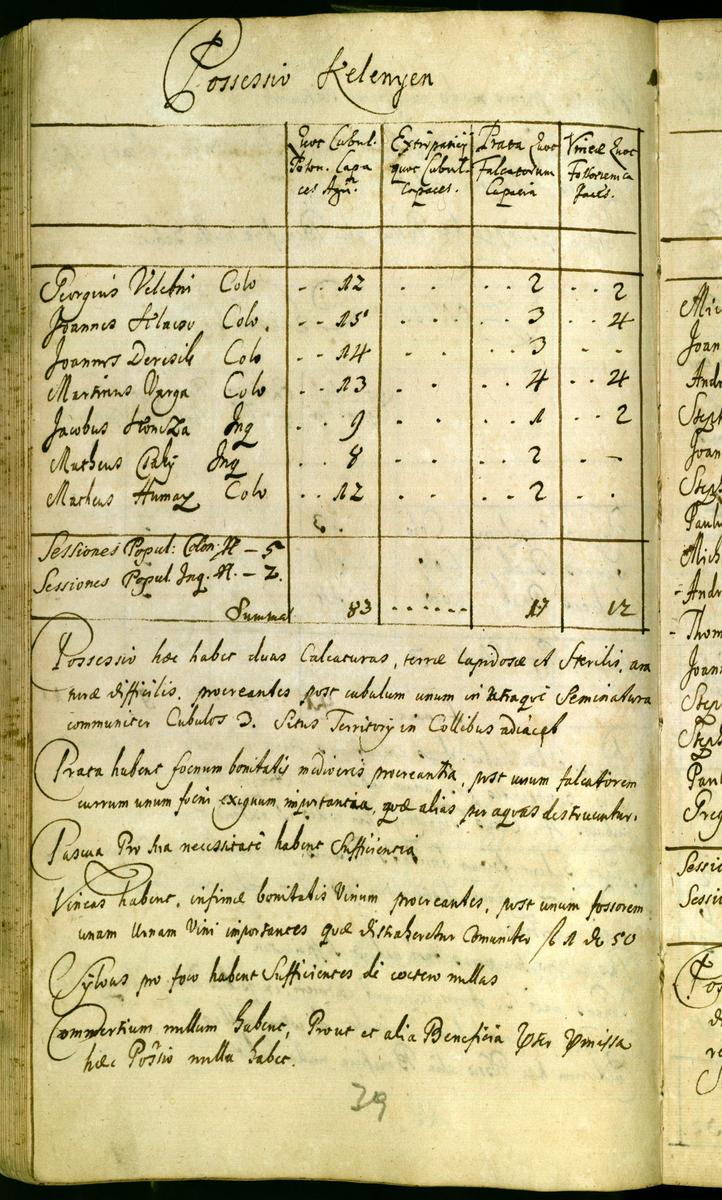 Possessio Kelenyen
Quot Cubul. Poson. Capaces Agri.
Extirpatitij quot Cubul. Capaces.
Prata Quot Falcatorum Capacia
Vineæ Quot Fossorem Capaces.
Georgius Velebni Colo - - 12 - - - - 2 - - 2
Joannes Colo. - - 15 - - - - 3 - - 4
Joannes Colo - - 14 - - - - 3 - -
Martinus Varga Colo - - 13 - - - - 4 - - 4
Jacobus Inq - - 9 - - - - 1 - - 2
Matheus Inq - - 8 - - - - 2 - - -
Matheus Humay Colo - - 12 - - - - 2 - -
Sessiones Popul: Colon. N - 5
Sessiones Popul Inq. N. - 2.
Summa 83 - - - - - - 17 12
Possessio hæc habet duas Calcaturas, terræ lapidosæ et Sterilis, ara
turæ difficilis, procreantes post cubulum unum in utraque Seminatura
communiter Cubulos 3. Situs Territorij in Collibus adiacet
Prata habent foenum bonitatis mediocris procreantia, post unum falcatorem
currum unum foeni exiguum importantia, quæ alias per aquas destruuntur.
Pascua Pro sua necessitate habent Sufficientia
Vineas habent, infimæ bonitatis Vinum procreantes, post unum fossorem
unam Urnam Vini importantes quæ distraheretur Comuniter fl 1 dr 50
Sylvas pro foco habent Sufficientes de coetero nullas
Commertium nullum habent, Prout et alia Beneficia præter præmissa
hæc Possio nulla habet.
39
Mic
Joan
Andr
Steph
Joan
Step
Paulu
Mich
- Andr
- Thom
Joan
Step
Steph
Paul
Greg
Sessio
Sessi